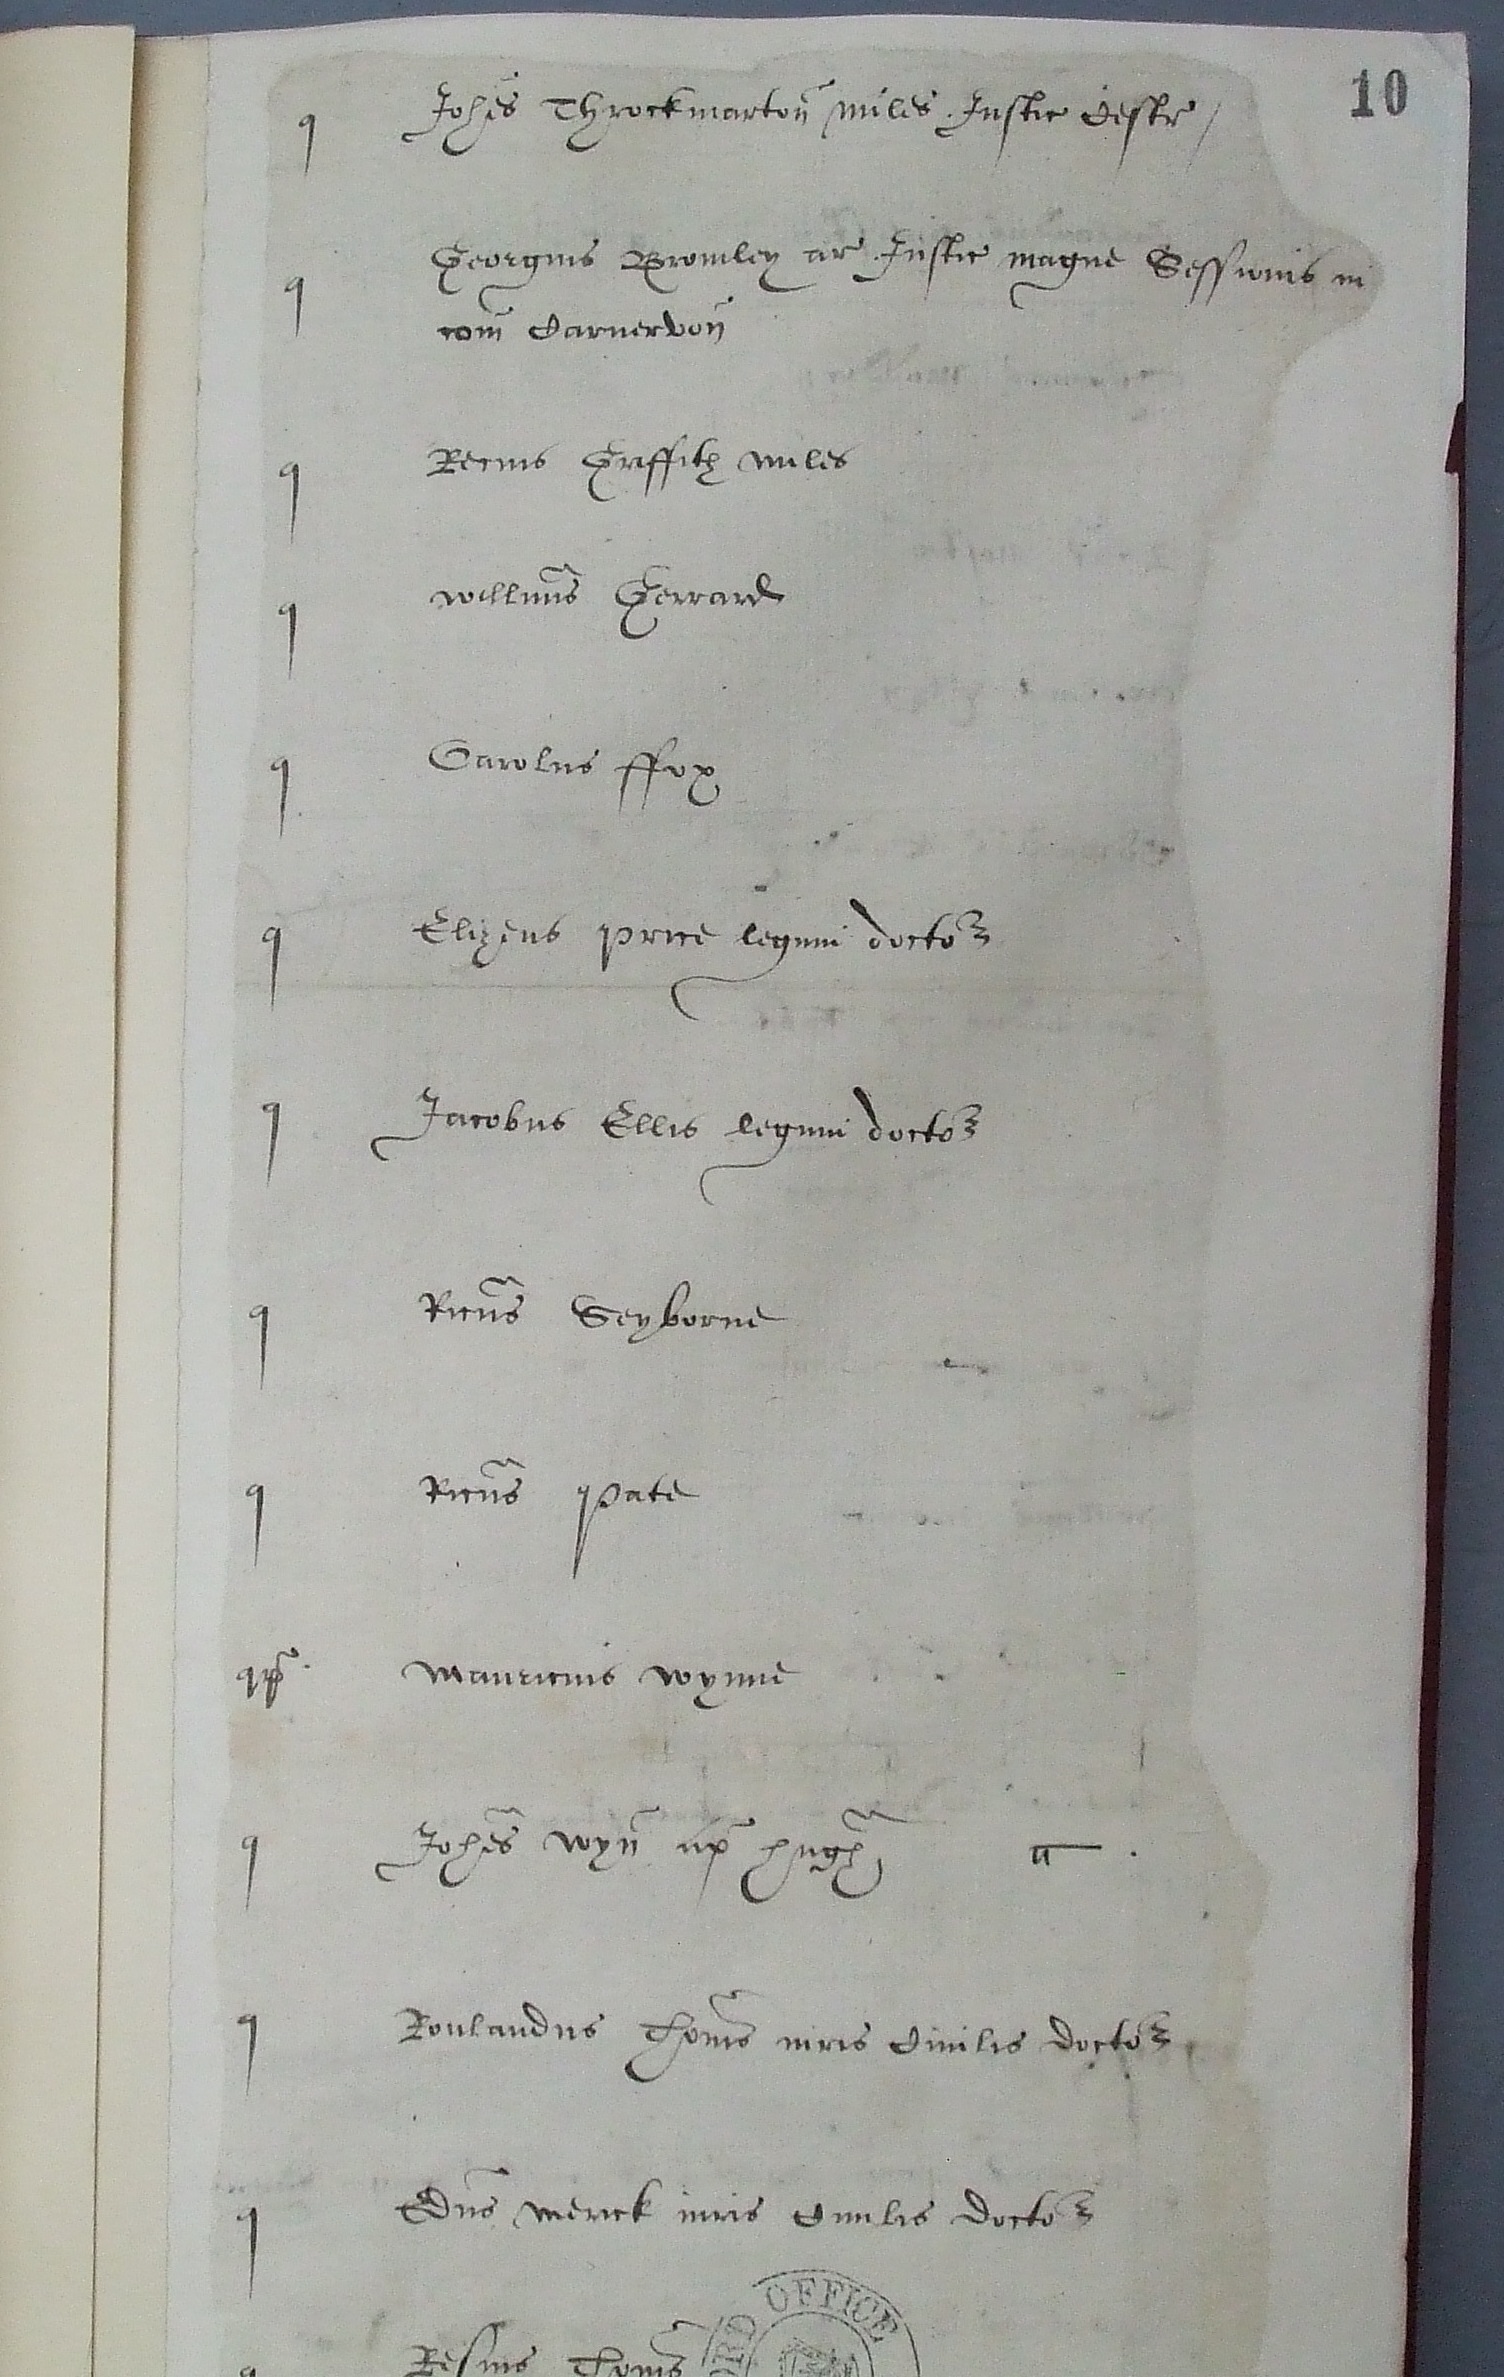 10
q Johēs Throckmarton̄ miles Justic Cestr /
q Georgius Bromley ar Justic magne Sessionis in
com̄ Carnervon̄
q Recius Griffith miles
q Willm̄s Gerrard
q Carolus ffox
q Elizeus Price legum doctor
q Jacobus Ellis legum doctor
q Ric̄us Seyborne
q Ric̄us Pate
q Mauricius Wynne
q Johēs Wyn̄ ap̄ hugh̄ a
q Roulandus Thom̄s iuris Civilis doctor
q Edn̄s Merick iuris Civilis doctor
q Thom̄s
RD OFFICE